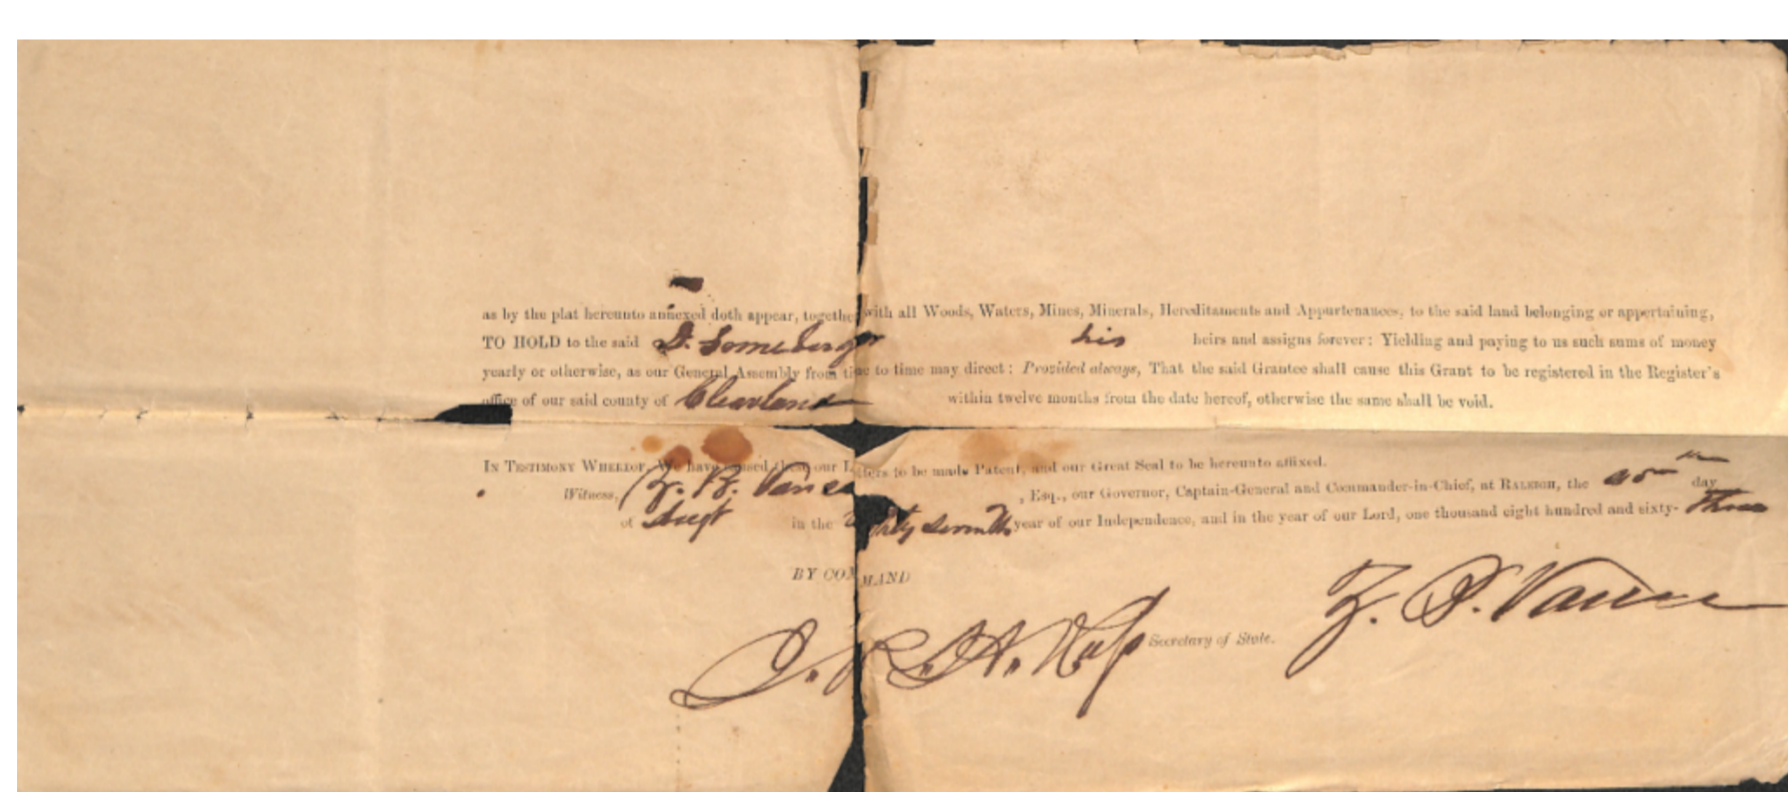 as by the plat hereunto annexed doth appear, together with all Woods, Waters, Mines, Minerals, Hereditaments and Appurtenances, to the said land belonging or appertaining,
TO HOLD to the said D. Someberger his heirs and assigns forever: Yielding and paying to us such sums of money
yearly or otherwise, as our General Assembly from time to time may direct: Provided always, That the said Grantee shall cause this Grant to be registered in the Register's
office of our said county of Cleavland within twelve months from the date hereof, otherwise the same shall be void.
IN TESTIMONY WHEREOF, We have caused these our Letters to be made Patent, and our Great Seal to be hereunto affixed.
Witness, Z. B. Vance, Esq., our Governor, Captain-General and Commander-in-Chief, at RALEIGH, the day
of Augt in the Eighty Seventh year of our Independence, and in the year of our Lord, one thousand eight hundred and sixty-three
BY COMMAND
Z. B. Vance
J. P. H. Russ Secretary of State.